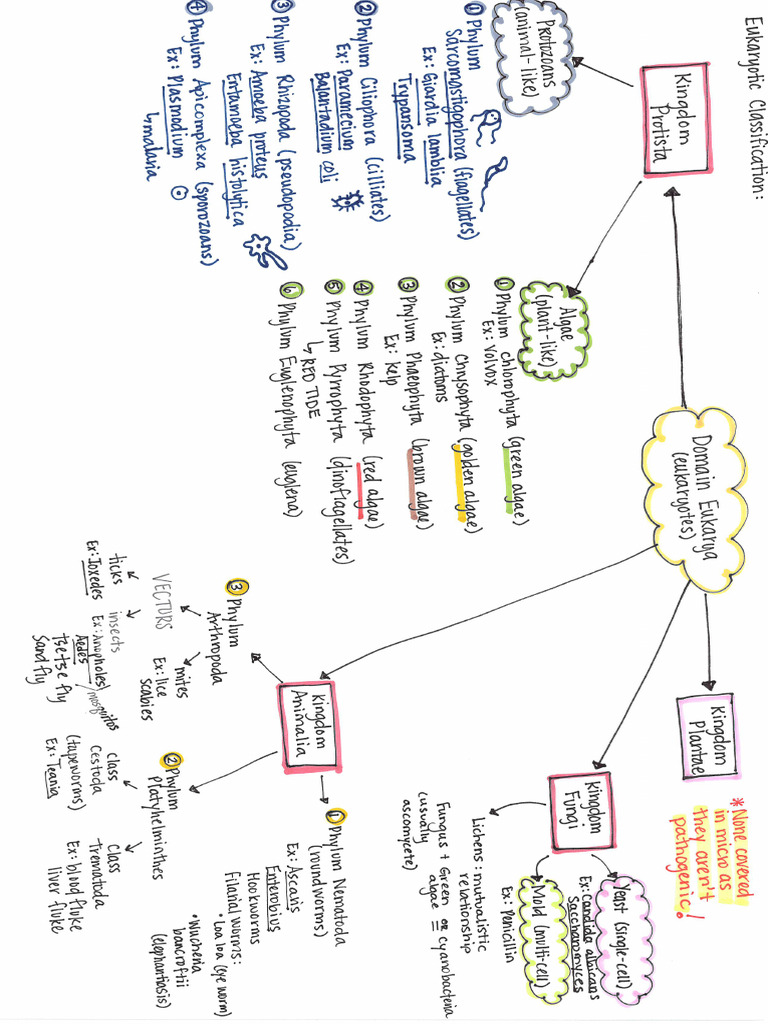 Eukaryotic Classification:
Domain Eukarya
(eukaryotes)
Kingdom
Protista
Protozoans
(animal-like)
① Phylum
Sarcomastigophora (flagellates)
Ex: Giardia lamblia
Trypansoma
② Phylum Ciliophora (cilliates)
Ex: Paramecium
Balantadium coli
③ Phylum Rhizopoda (pseudopodia)
Ex: Amoeba proteus
Entamoeba histolytica
④ Phylum Apicomplexa (sporozoans)
Ex: Plasmodium
↳malaria
Algae
(plant-like)
① Phylum chlorophyta (green algae)
Ex: Volvox
② Phylum Chrysophyta (golden algae)
Ex: diatoms
③ Phylum Phaeophyta (brown algae)
Ex: kelp
④ Phylum Rhodophyta (red algae)
⑤ Phylum Pyrrophyta (dinoflagellates)
↳ RED TIDE
⑥ Phylum Euglenophyta (euglena)
Kingdom
Plantae
*None covered
in micro as
they aren't
pathogenic!
Kingdom
Fungi
Yeast (single-cell)
Ex: Candida albicans
Saccharomyces
Mold (multi-cell)
Ex: Penicillin
Lichens: mutualistic
relationship
Fungus + Green or cyanobacteria
(usually algae =
ascomycete)
Kingdom
Animalia
① Phylum Nematoda
(roundworms)
Ex: Ascaris
Enterobius
Hookworms
Filarial Worms:
• Loa loa (eye worm)
• Wucheria
bancroftii
(elephantiasis)
② Phylum
Platyhelminthes
class
Cestoda
(tapeworms)
Ex: Teania
class
trematoda
Ex: blood fluke
liver fluke
③ Phylum
Arthropoda
VECTORS
mites
Ex: lice
scabies
ticks
Ex: Ioxedes
insects
Ex: Anopholes/mosquitos
Aedes
Tsetse fly
Sandfly